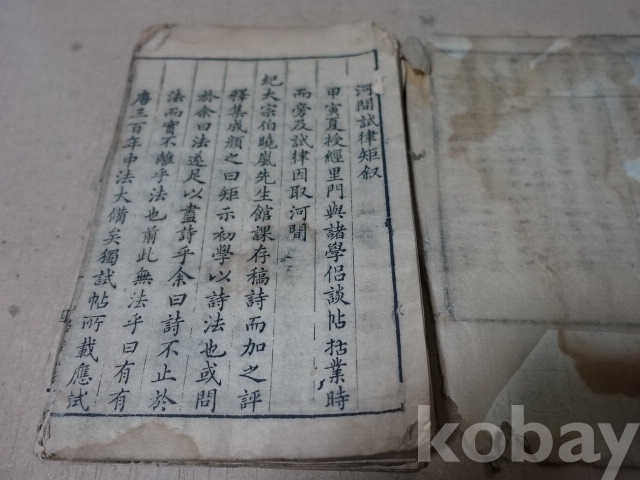 河間試律矩叙
甲寅夏授經里門與諸學侶談帖括業時
而旁及試律因取河間
紀大宗伯曉嵐先生館課存稿詩而加之評
釋集成顏之曰矩示初學以詩法也或問
於余曰法遂足以盡詩乎余曰詩不止於
法而實不離乎法也前此無法乎曰有有
唐三百年中法大備矣獨試帖所載應試
kobay